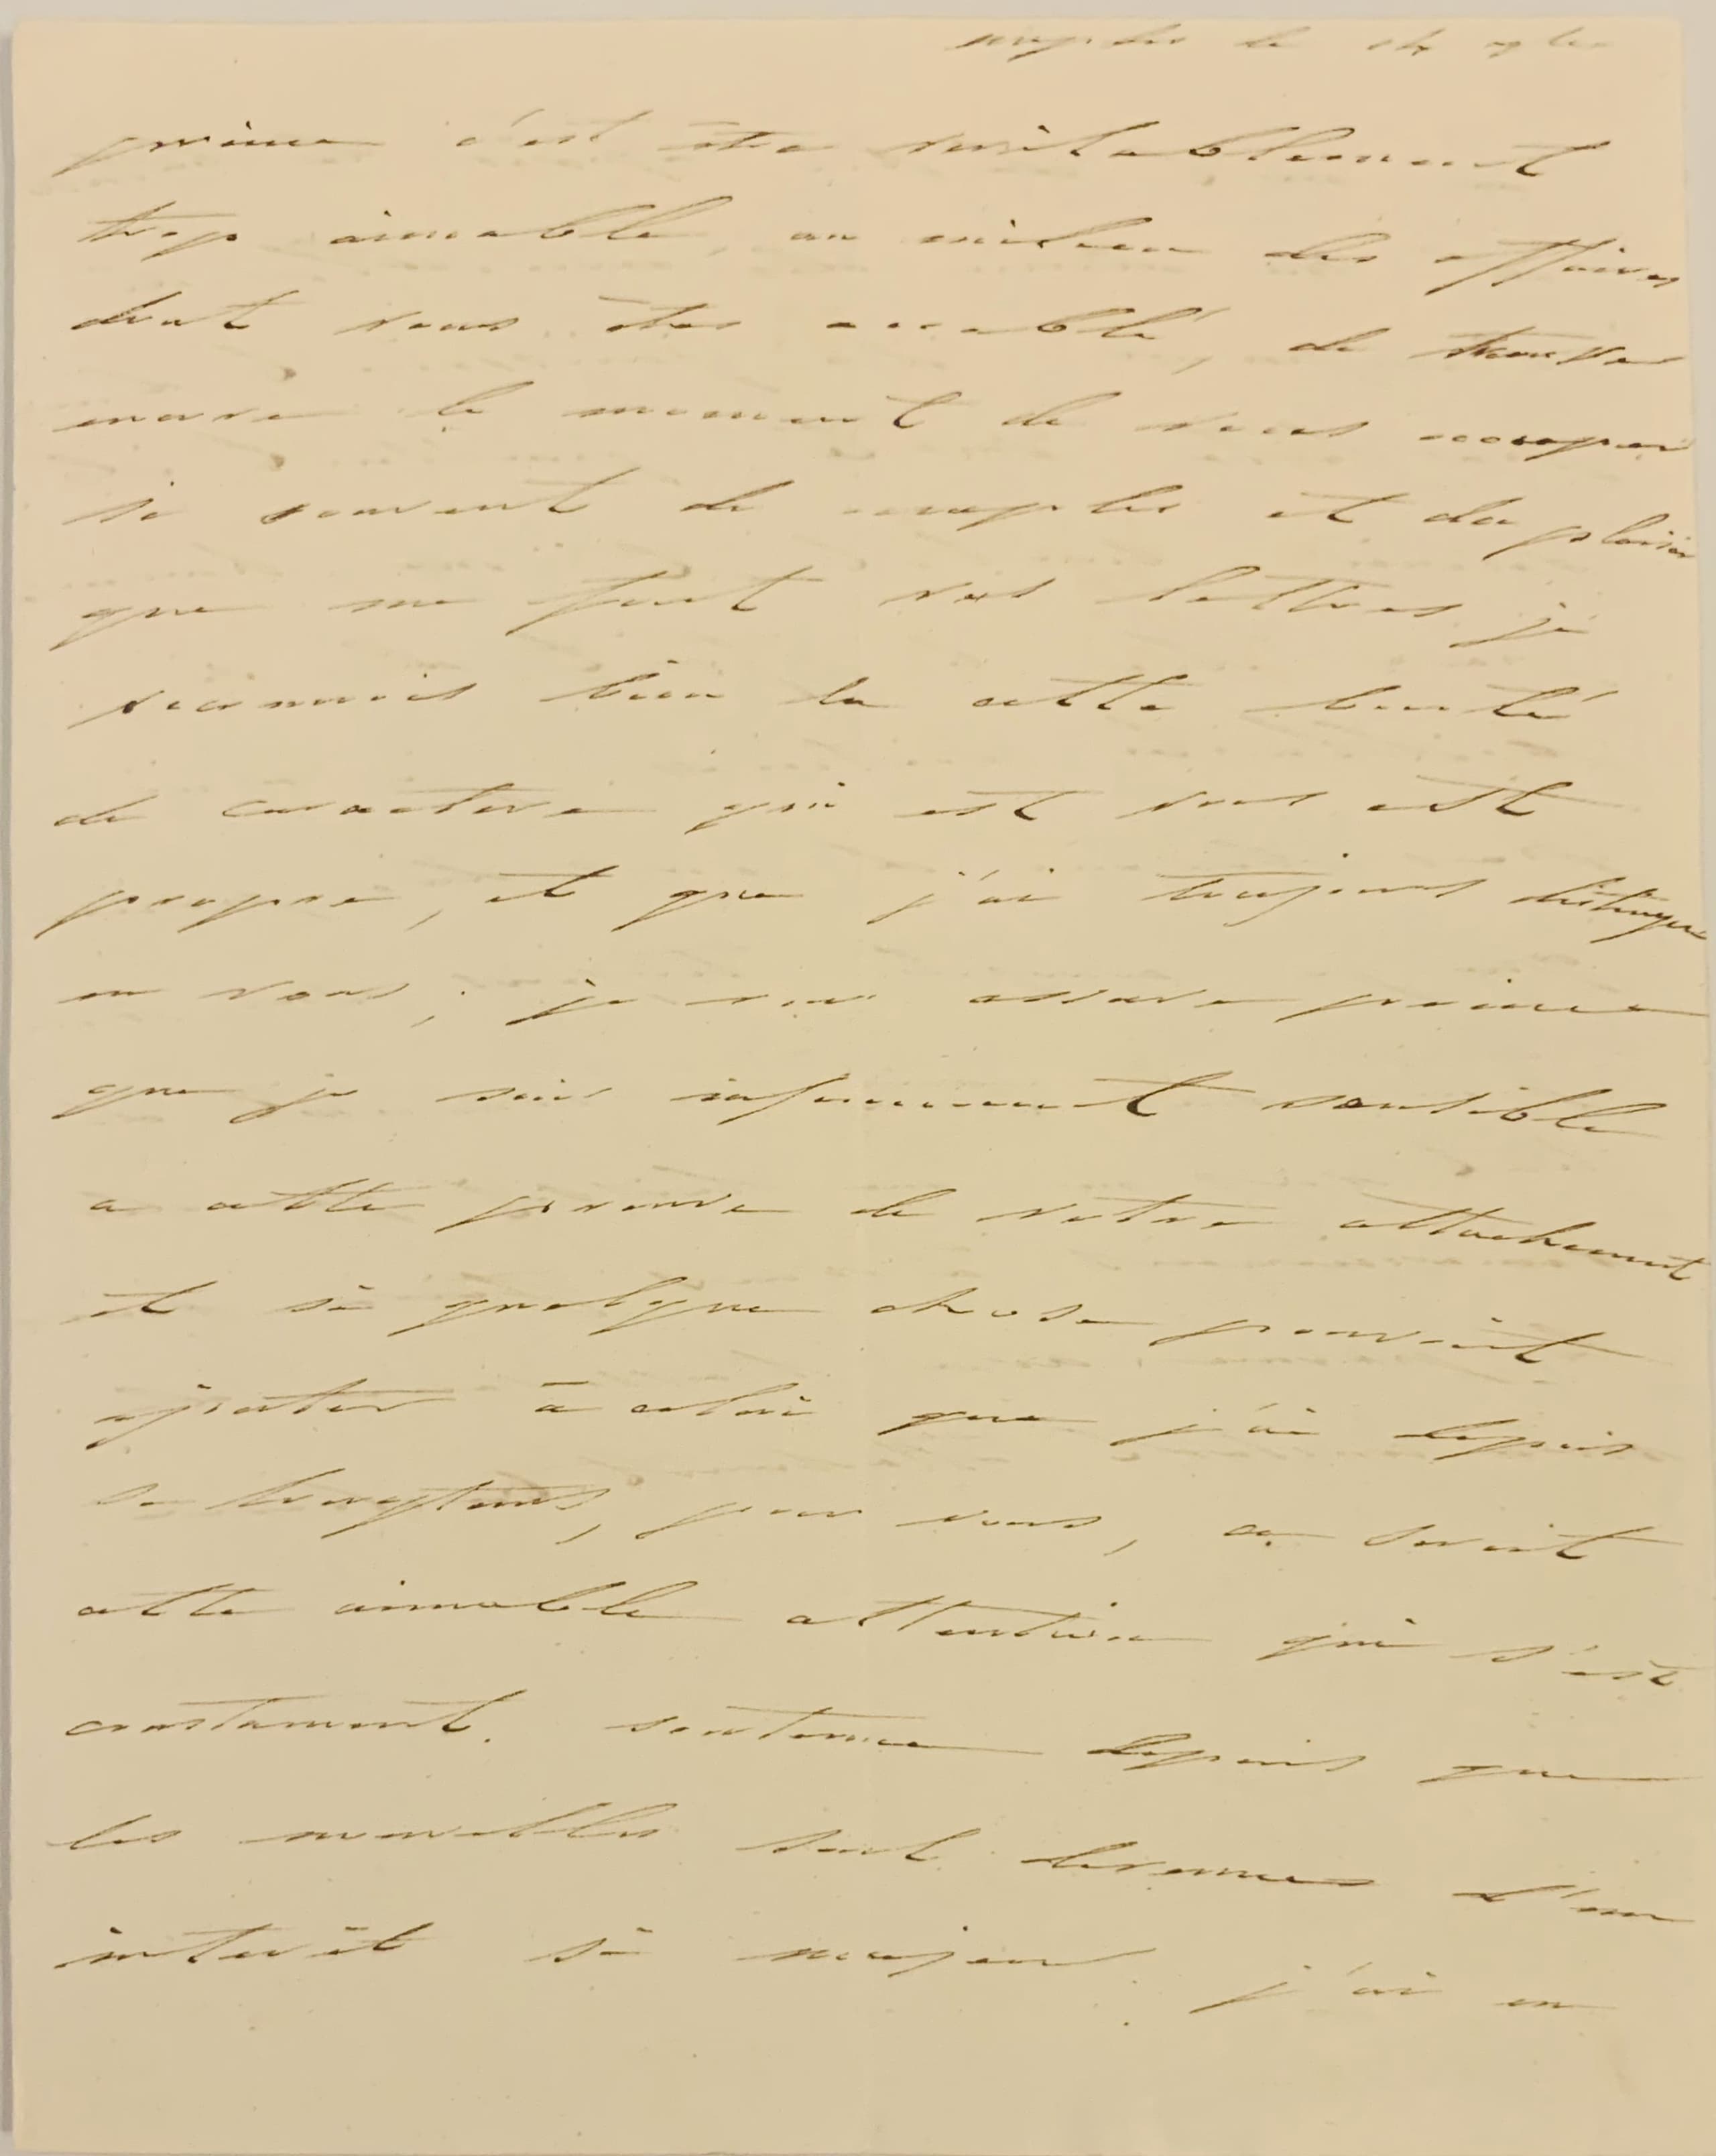 naples le 14 7bre
prince c'est être veritablement
trop aimable, au milieu des affaires
dont vous êtes accablé, de trouver
encore le moment de vous occuper
si souvent de naples et du plaisir
que me font vos lettres je
reconnois bien la cette bonté
de caractere qui est vous est
propre, et que j'ai toujours distingué
en vous, je vous assure prince
que je suis infinement sensible
a cette preuve de votre attachement
et si quelque chose pouvoit
ajouter à celui que j'ai depuis
si longtems, pour vous, ce seroit
cette aimable attention qui s'est
constament soutenue depuis que
les nouvelles sont devenues d'un
interêt si majeur. j'ai eu